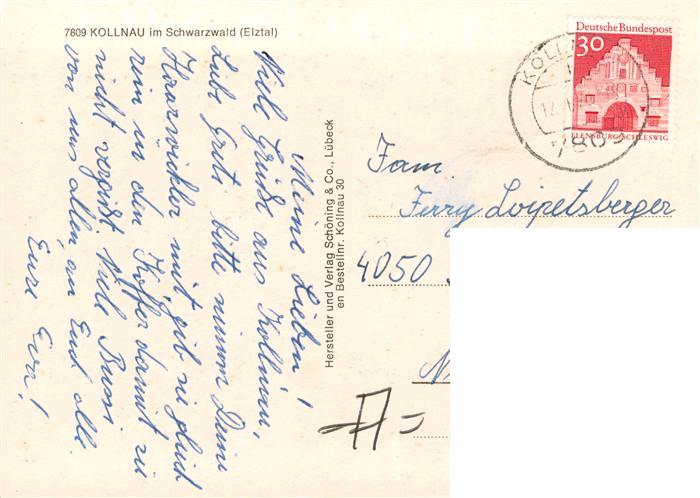 7809 KOLLNAU im Schwarzwald (Elztal)
Meine Lieben!
Viel Grüße aus Kollnau,
Liebe Grete bitte nimm Deine
Haarwickler mit, gib sie gleich
rein in den Koffer damit sie
nicht vergißt. Viele Bussi
von uns allen, an Euch alle.
Eure Eva!
Hersteller und Verlag Schöning & Co., Lübeck
en Bestellnr. Kollnau 30
Deutsche Bundespost
30
FLENSBURG/SCHLESWIG
KOLLNAU
12.
7809
Fam.
Ferry Loipetsberger
4050
N
A=